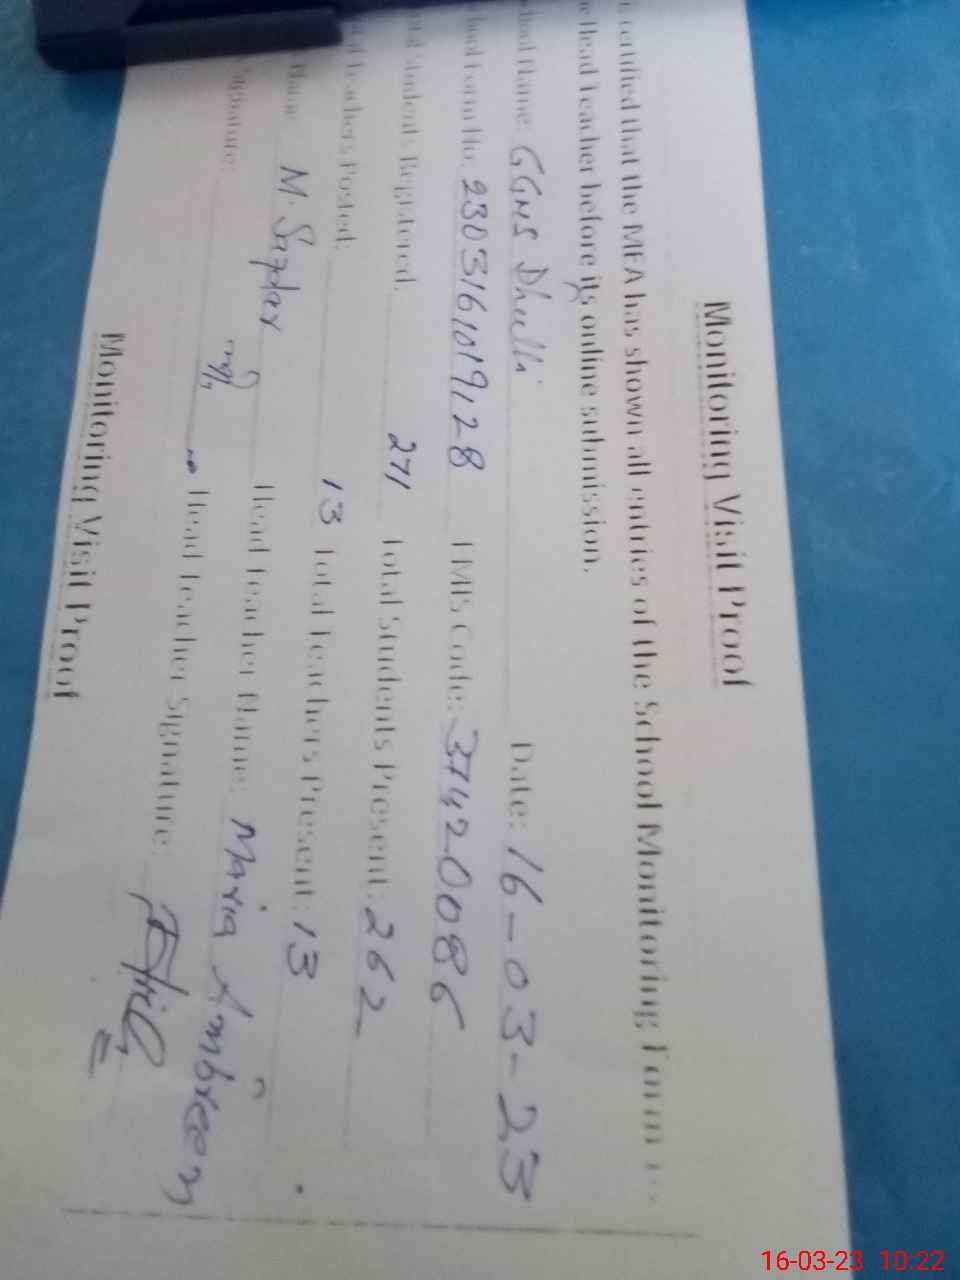 Monitoring Visit Proof
certified that the MEA has shown all entries of the School Monitoring Form
Head Teacher before its online submission.
hool Name: GGHS Dhulli Date: 16-03-23
hool Form No. 2303161019128 EMIS Code: 37420086
otal Students Registered. 271 Total Students Present: 262
Teachers Posted. 13 Total Teachers Present: 13
Name M. Safdar Head Teacher Name: Maria Ambreen
Signature: Head Teacher Signature:
Monitoring Visit Proof
16-03-23 10:22